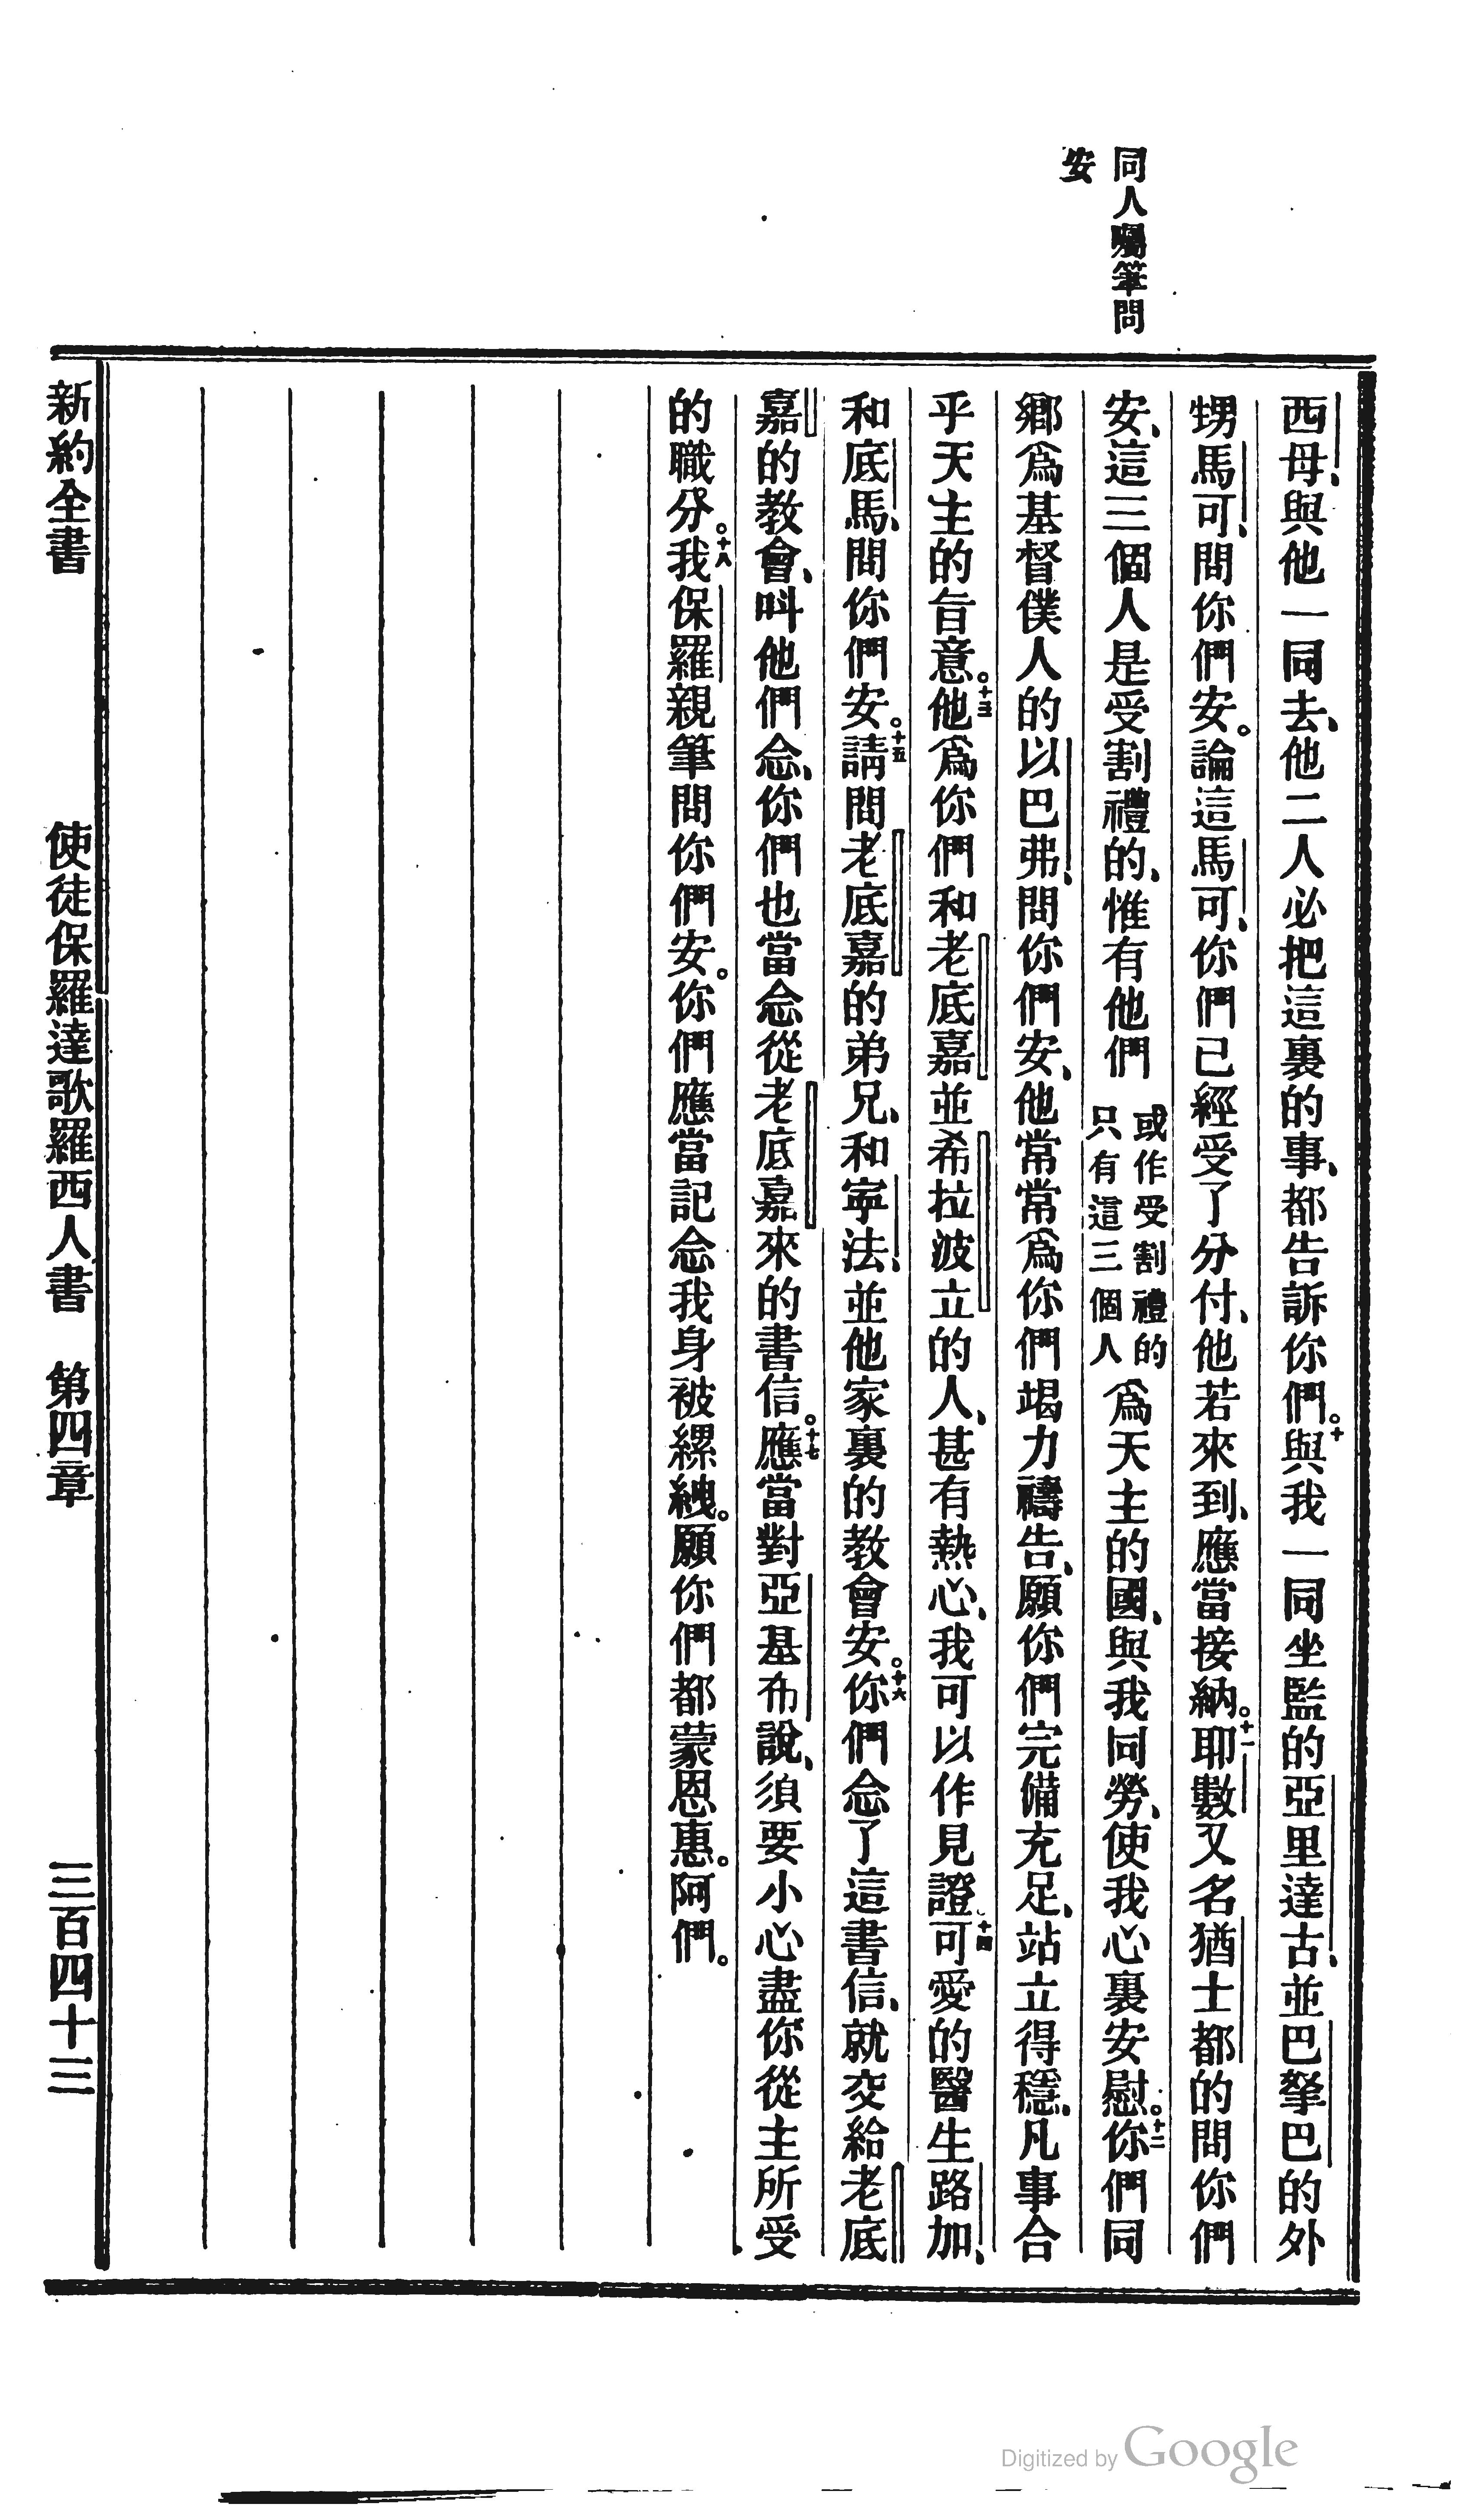 同人囑筆問
安
西母、與他一同去、他二人必把這裏的事、都告訴你們。十與我一同坐監的亞里達古、並巴拏巴的外
甥馬可、問你們安。論這馬可、你們已經受了分付、他若來到、應當接納。十一耶數又名猶士都的問你們
安、這三個人是受割禮的、惟有他們或作受割禮的只有這三個人爲天主的國、與我同勞、使我心裏安慰。十二你們同
鄉爲基督僕人的以巴弗、問你們安、他常常爲你們竭力禱告、願你們完備充足、站立得穩、凡事合
乎天主的旨意。十三他爲你們和老底嘉並希拉波立的人、甚有熱心、我可以作見證。十四可愛的醫生路加、
和底馬、問你們安。十五請問老底嘉的弟兄、和寗法、並他家裏的教會安。十六你們念了這書信、就交給老底
嘉的教會、叫他們念、你們也當念從老底嘉來的書信。十七應當對亞基布說、須要小心盡你從主所受
的職分。十八我保羅親筆問你們安。你們應當記念我身被縲絏。願你們都蒙恩惠。阿們。
新約全書 使徒保羅達歌羅西人書 第四章 三百四十三
Digitized by Google